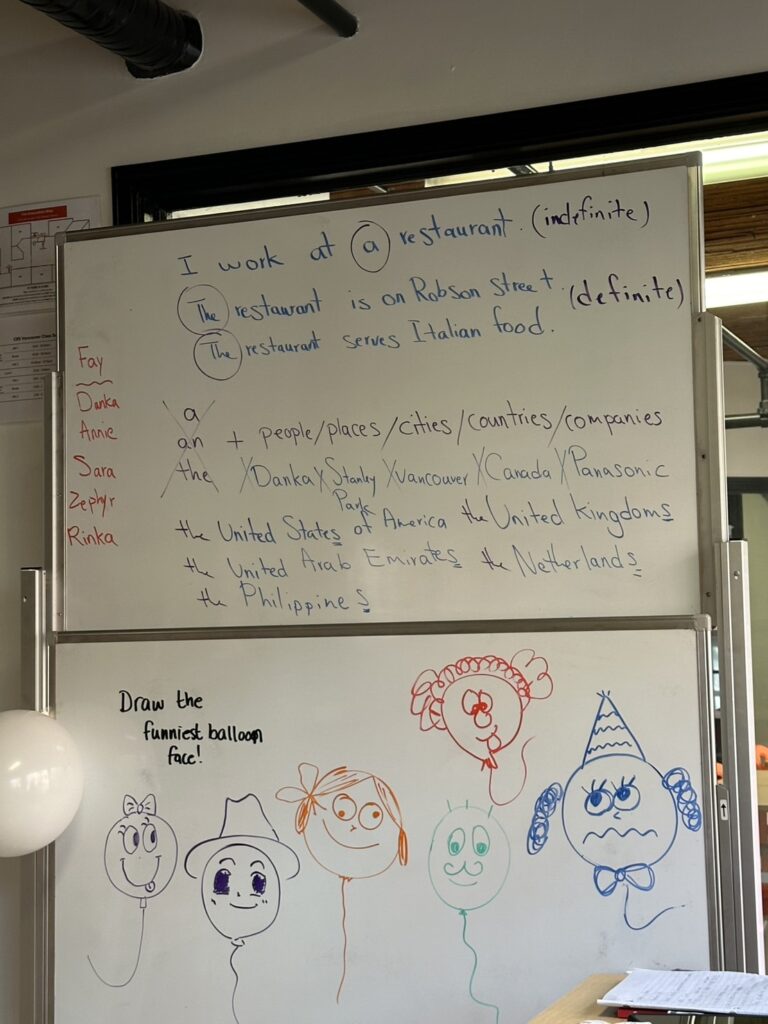 I work at a restaurant. (indefinite)
The restaurant is on Robson Street. (definite)
The restaurant serves Italian food.
Fay
Danka
Annie
Sara
Zephyr
Rinka
a
an + people/places/cities/countries/companies
the X Danka X Stanley Park X Vancouver X Canada X Panasonic
the United States of America the United Kingdoms
the United Arab Emirates the Netherlands
the Philippines
Draw the
funniest balloon
face!